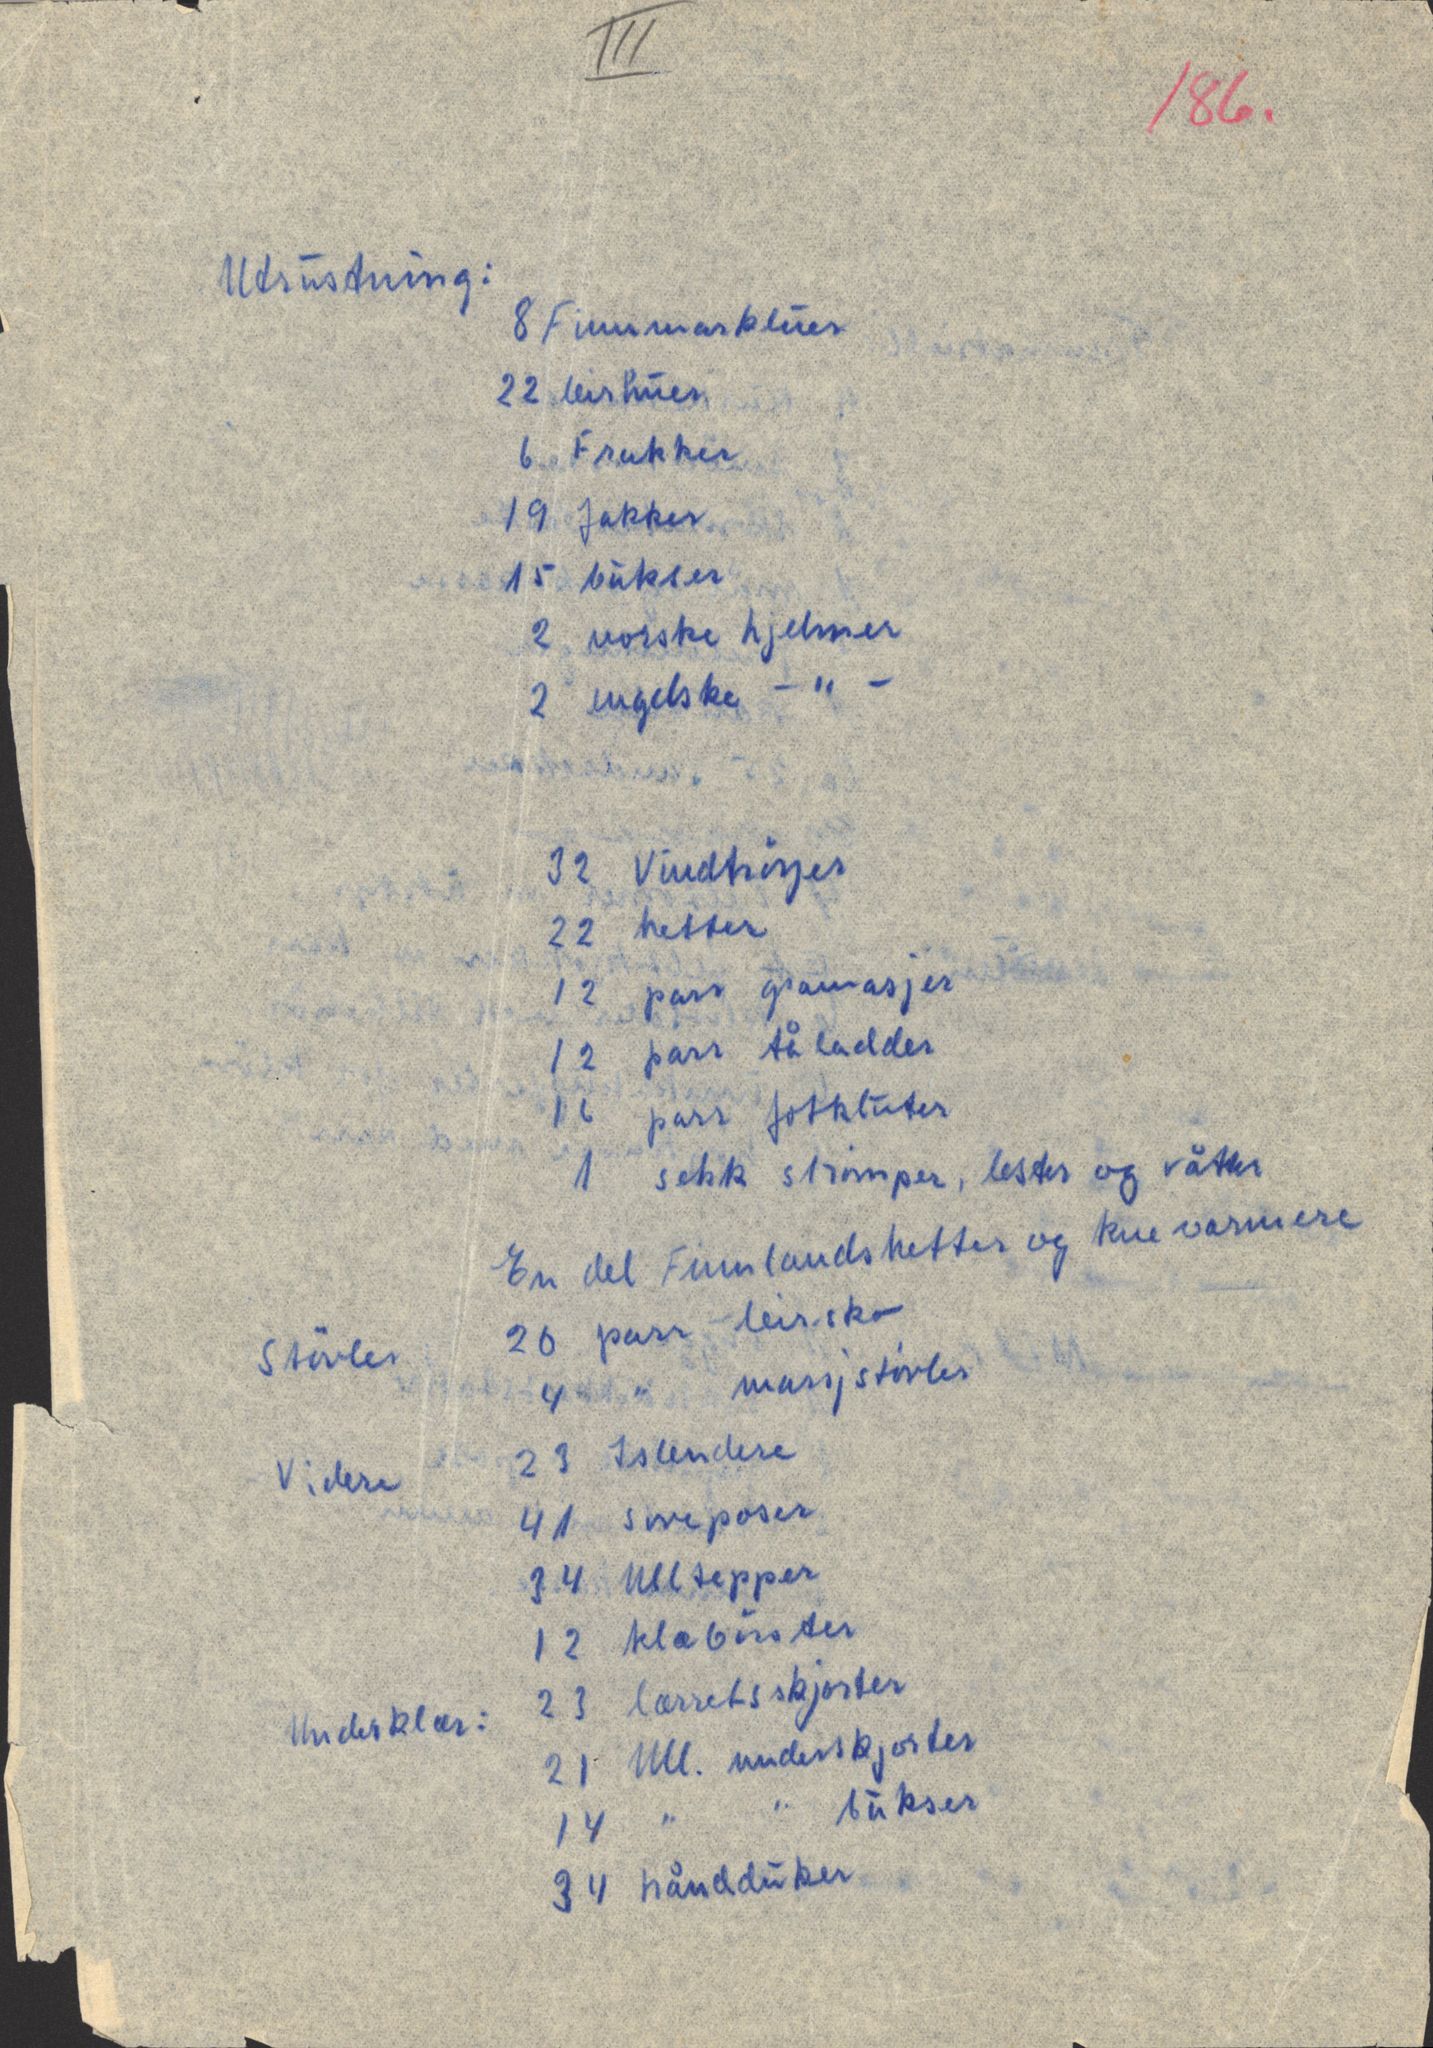 III
186.
Utrüstning:
8 Finnmarklüer
22 leirlüer
6 Frakker
19 Jakker
15 bükser
2 norske hjelmer
2 engelske - " -
32 Vindtröyer
22 hetter
12 parr gamasjer
12 parr tåladder
16 parr fotklüter
1 sekk strömper, lester og våtter
En del Finnlandshetter og knevarmere
20 parr leirsko
Stövler
4 " marsjstövler
Videre 23 Islendere
41 soveposer
34 Ulltepper
12 klæbörster
23 lærretsskjorter
Undesklær:
21 Ull. underskjorter
14 " " bükser
34 hånddüker